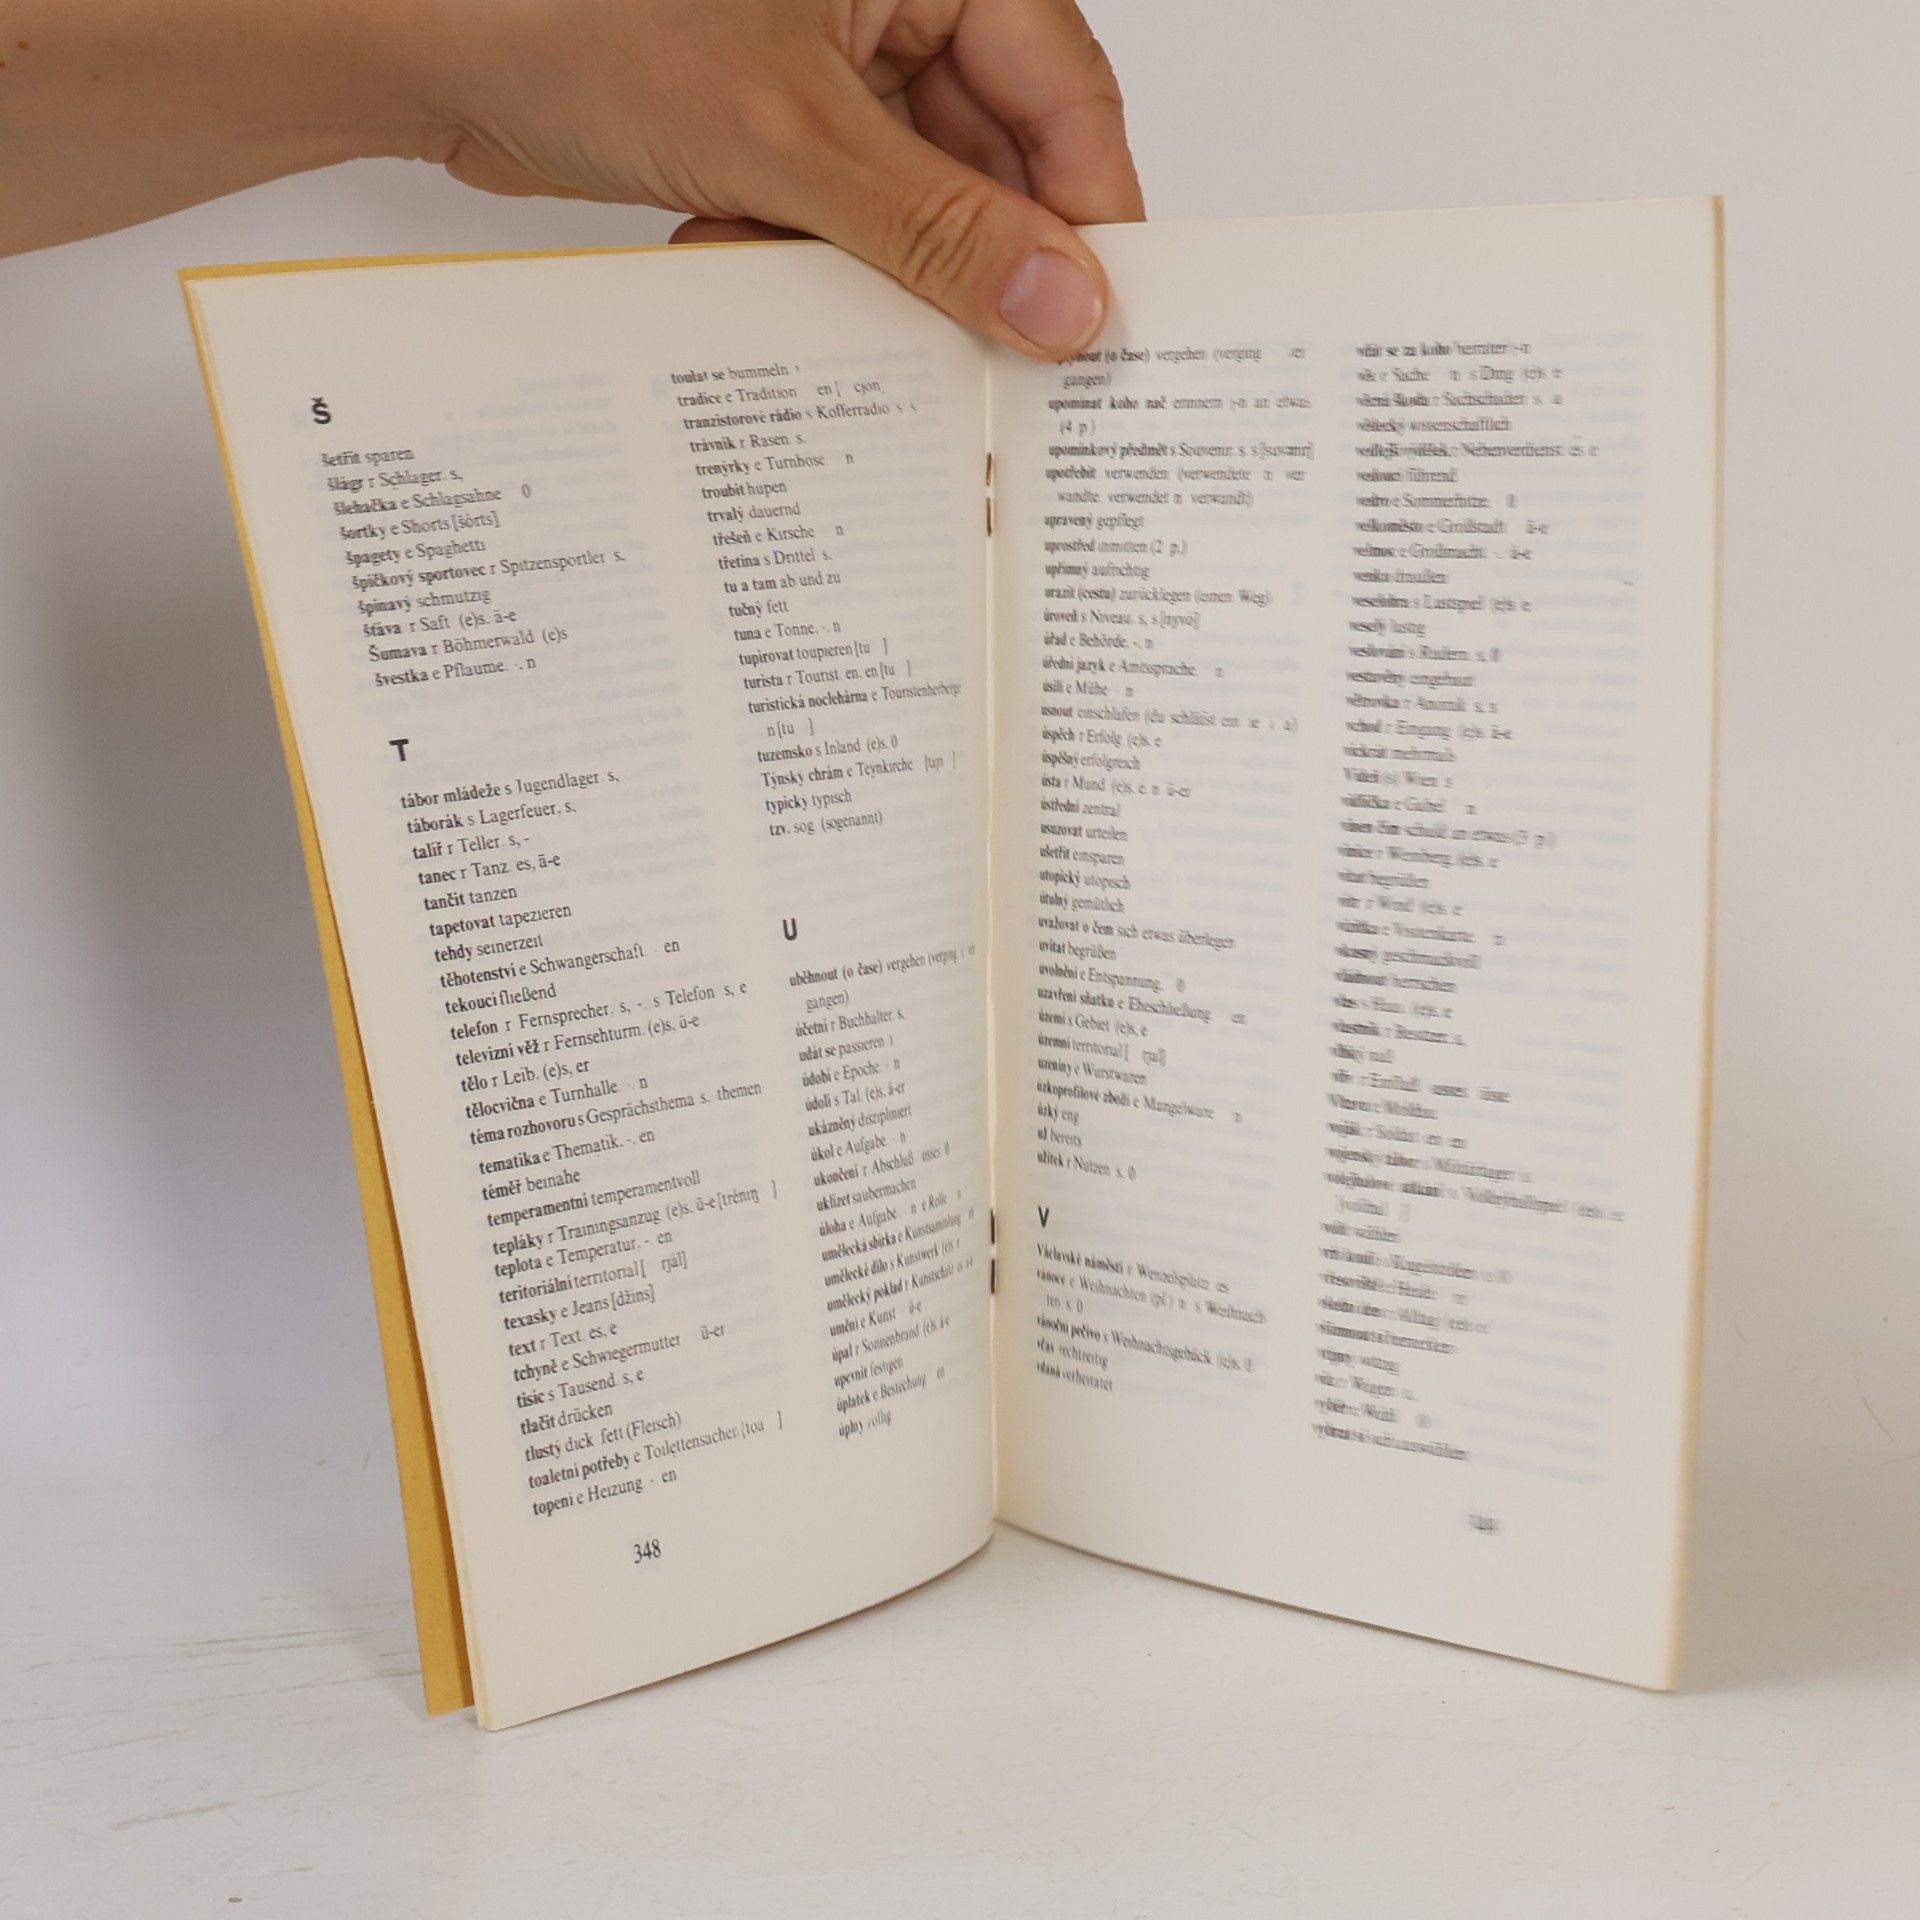 Š
šetřit sparen
šlágr r Schlager. s,
šlehačka e Schlagsahne 0
šortky e Shorts [šórts]
špagety e Spaghetti
špičkový sportovec r Spitzensportler s.
špinavý schmutzig
šťáva r Saft (e)s. ä-e
Šumava r Böhmerwald (e)s
švestka e Pflaume. -. n
T
tábor mládeže s Jugendlager. s,
táborák s Lagerfeuer. s,
talíř r Teller. s, -
tanec r Tanz. es, ä-e
tančit tanzen
tapetovat tapezieren
tehdy seinerzeit
těhotenství e Schwangerschaft. en
tekoucí fließend
telefon r Fernsprecher. s, -. s Telefon s, e
televizní věž r Fernsehturm. (e)s, ü-e
tělo r Leib. (e)s, er
tělocvična e Turnhalle -. n
téma rozhovoru s Gesprächsthema s. themen
tematika e Thematik. -. en
téměř beinahe
temperamentní temperamentvoll
tepláky r Trainingsanzug (e)s, ü-e [tréniŋ ]
teplota e Temperatur. -. en
teritoriální territorial [ rjál]
texasky e Jeans [džins]
text r Text. es, e
tchyně e Schwiegermutter ü-er
tisíc s Tausend. s, e
tlačit drücken
tlustý dick fett (Fleisch)
toaletní potřeby e Toilettensachen [toa ]
topení e Heizung. -. en
348
toulat se bummeln
tradice e Tradition en [ cjon
tranzistorové rádio s Kofferradio s s
trávník r Rasen s.
trenýrky e Turnhose n
troubit hupen
trvalý dauernd
třešeň e Kirsche n
třetina s Drittel s.
tu a tam ab und zu
tučný fett
tuna e Tonne. -. n
tupírovat toupieren [tu ]
turista r Tourist. en. en [tu ]
turistická noclehárna e Touristenherberge
n [tu ]
tuzemsko s Inland (e)s. 0
Týnský chrám e Teynkirche [tajn ]
typický typisch
tzv. sog (sogenannt)
U
uběhnout (o čase) vergehen (verging
gangen)
účetní r Buchhalter. s,
udát se passieren
údobí e Epoche. - n
údolí s Tal. (e)s. ä-er
ukázněný diszipliniert
úkol e Aufgabe. - n
ukončení r Abschluß usses 0
uklízet saubermachen
úloha e Aufgabe n e Rolle n
umělecká sbírka e Kunstsammlung
umělecké dílo s Kunstwerk (e)s
umělecký poklad r Kunstschatz
umění e Kunst ü-e
úpal r Sonnenbrand (e)s ä-e
upevnit festigen
úplatek e Bestechung en
úplný völlig
(o čase) vergehen (verging
gangen)
upomínat koho nač erinnern j-n an etwas
(4 p.)
upomínkový předmět s Souvenir. s. s
upotřebit verwenden (verwendete
wandte. verwendet n verwandt)
upravený gepflegt
uprostřed inmitten (2 p.)
upřímný aufrichtig
urazit (cestu) zurücklegen (einen Weg)
úroveň s Niveau. s, s [nyvó]
úřad e Behörde. -. n
úřední jazyk e Amtssprache n
úsilí e Mühe - n
usnout einschlafen (du schläfst ein
úspěch r Erfolg. (e)s. e
úspěšný erfolgreich
ústa r Mund (e)s. e. n ü-er
ústřední zentral
usuzovat urteilen
ušetřit einsparen
utopický utopisch
útulný gemütlich
uvažovat o čem sich etwas überlegen
uvítat begrüßen
uvolnění e Entspannung. 0
uzavření sňatku e Eheschließung en
území s Gebiet (e)s, e
územní territorial [ rjal]
uzeniny e Wurstwaren
úzkoprofilové zboží e Mangelware n
úzký eng
už bereits
užitek r Nutzen s. 0
V
Václavské náměstí r Wenzelsplatz es
vánoce e Weihnachten (pl) n s Weihnach
ten s. 0
vánoční pečivo s Weihnachtsgebäck (e)s. 0
včas rechtzeitig
vdaná verheiratet
vdát se za koho
věc e Sache n s Ding (e)s e
věcná škola r Sachschalter s. a
vědecký wissenschaftlich
vedlejší výdělek r Nebenverdienst es e
vedoucí führend
vedro e Sommerhitze 0
velkoměsto e Großstadt ä-e
velmoc e Großmacht -. ä-e
venku draußen
veselohra s Lustspiel (e)s e
veselý lustig
veslování s Rudern s. 0
vestavěný eingebaut
větrovka r Anorak s. s
vchod r Eingang (e)s. ä-e
víckrát mehrmals
Vídeň (s) Wien s
vidlička e Gabel n
vinen čím schuld an etwas (3 p.)
vinice r Weinberg (e)s. e
vítat begrüßen
vítr r Wind (e)s. e
vizitka e Visitenkarte n
vkusný geschmackvoll
vládnout herrschen
vlastník r Besitzer. s.
Vltava e Moldau
voják r Soldat en en
vojenský tábor s Militärlager s.
volit wählen